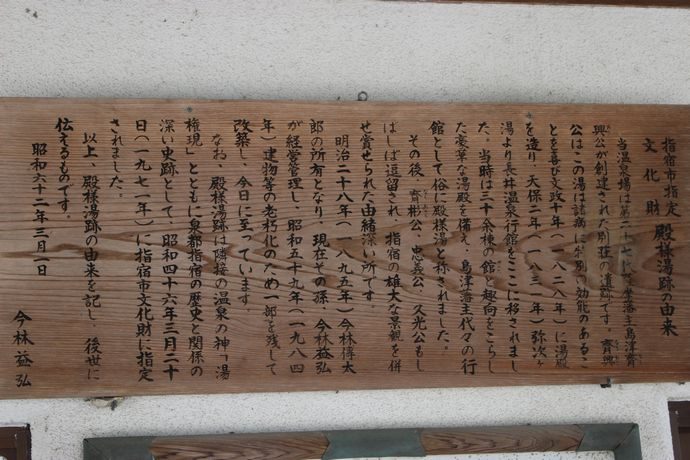 指宿市指定
文化財 殿様湯跡の由来
当温泉場は第二十七代薩摩藩主島津齊
興公が創建された別荘の遺跡です。齊興
公はこの湯は諸病に卓別い効能のあるこ
とを喜び文政十一年(一八二八年)に湯殿
を造り、天保二年(一八三一年)弥次ヶ
湯より長井温泉行館をここに移されまし
た、当時は三十余棟の館と趣向をこらし
た豪華な湯殿を備え、島津藩主代々の行
館として俗に殿様湯と称されました。
その後、齊彬公、忠義公、久光公もし
ばしば逗留され、指宿の雄大な景観を併
せ賞せられた由緒深い所です。
明治二十八年(一八九五年)今林傳太
郎の所有となり、現在その孫、今林益弘
が経営管理し、昭和五十九年(一九八四
年)建物等の老朽化のため一部を残して
改築し、今日に至っています
なお、殿様湯跡は隣接の温泉の神「湯
権現」とともに泉都指宿の歴史と関係の
深い史跡として、昭和四十六年三月二十
日(一九七一年)に指宿市文化財に指定
されました。
以上、殿様湯跡の由来を記し、後世に
伝えるものです。
昭和六十二年三月一日
今林益弘